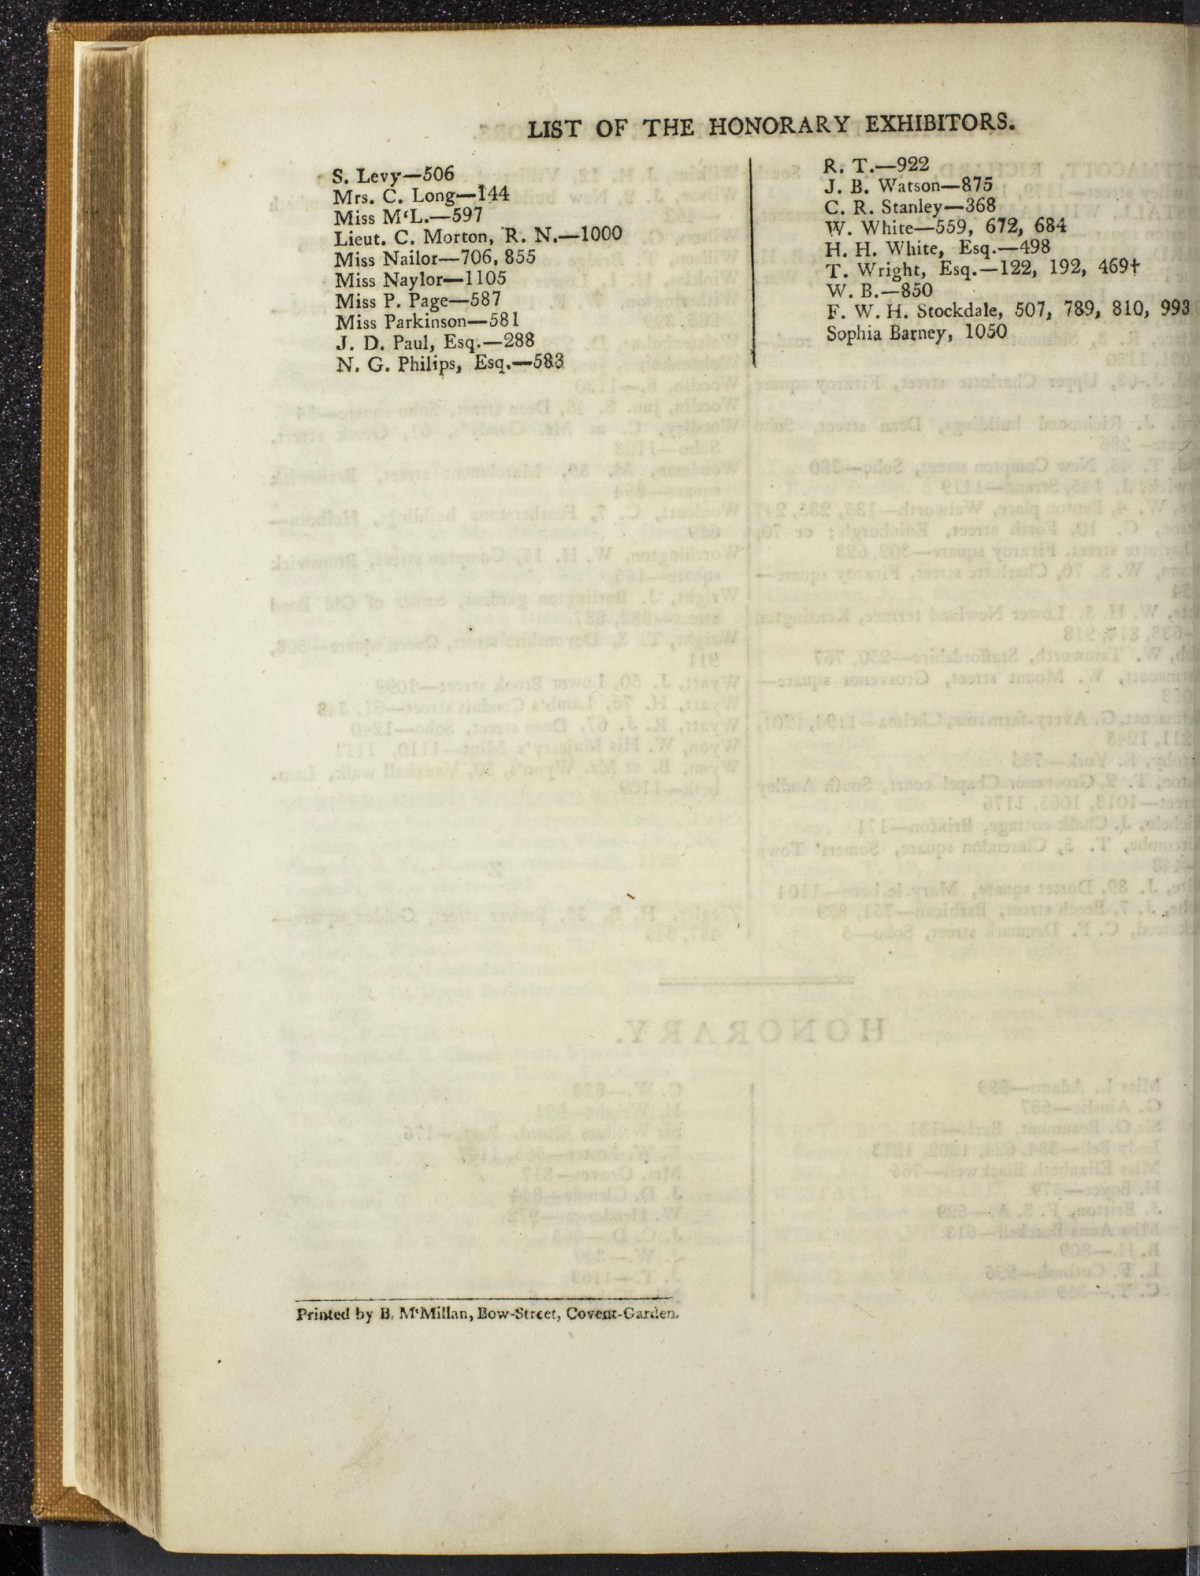 LIST OF THE HONORARY EXHIBITORS.
S. Levy—506
Mrs. C. Long—144
Miss M‘L.—597
Lieut. C. Morton, R. N.—1000
Miss Nailor—706, 855
Miss Naylor—1105
Miss P. Page—587
Miss Parkinson—581
J. D. Paul, Esq.—288
N. G. Philips, Esq.—583
R. T.—922
J. B. Watson—875
C. R. Stanley—368
W. White—559, 672, 684
H. H. White, Esq.—498
T. Wright, Esq.—122, 192, 469†
W. B.—850
F. W. H. Stockdale, 507, 789, 810, 993
Sophia Barney, 1050
Printed by B. M‘Millan, Bow-Street, Covent-Garden.